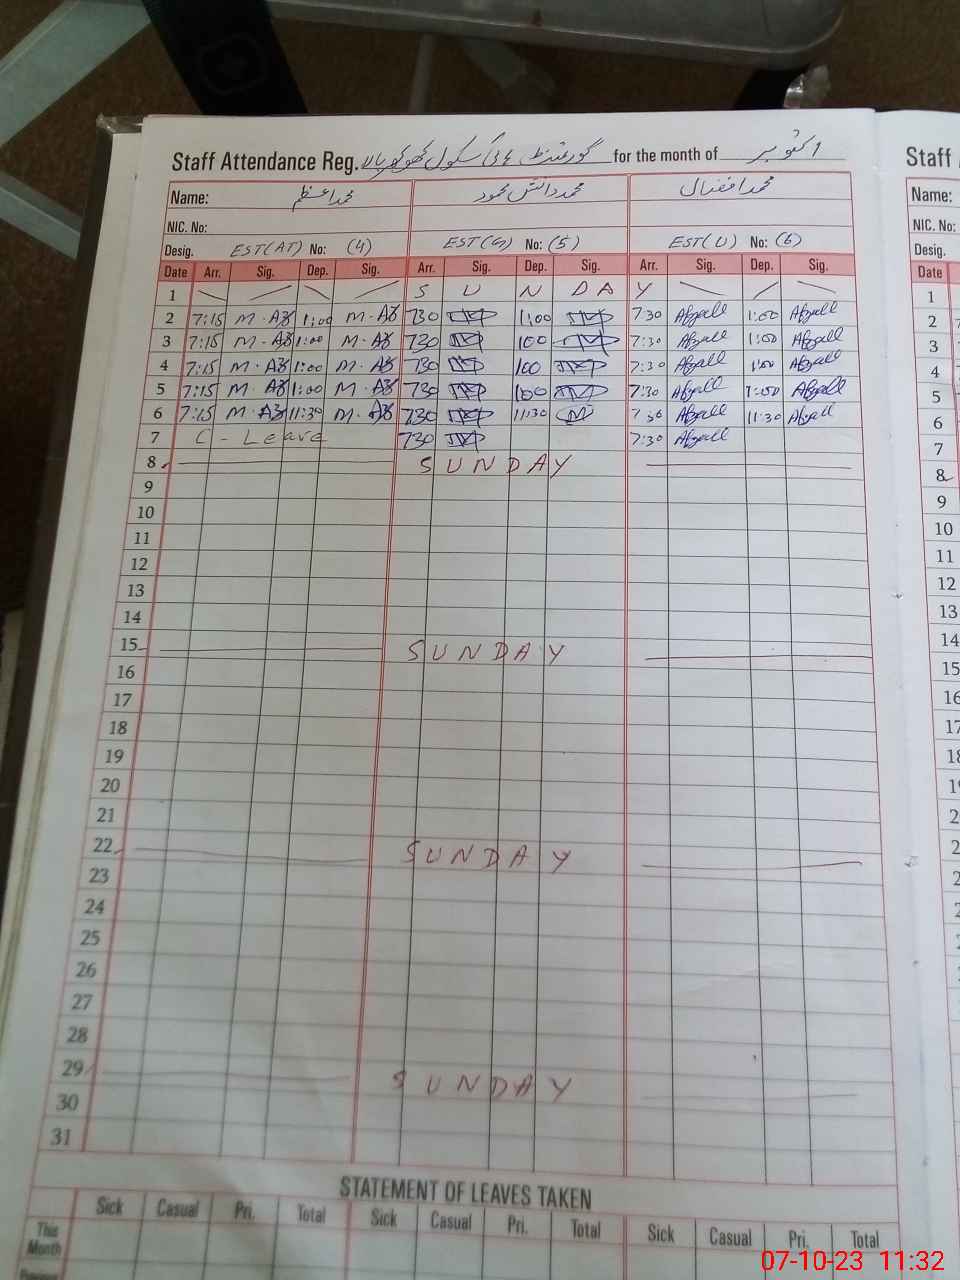 Staff Attendance Reg. گورنمنٹ ہائی سکول کھوکھر بالا for the month of اکتوبر
Staff
Name: محمد اعظم محمد دانش محمود محمد افضال
Name:
NIC. No:
NIC. No:
Desig. EST(AT) No: (4) EST(G) No: (5) EST(U) No: (6)
Desig.
Date Arr. Sig. Dep. Sig. Arr. Sig. Dep. Sig. Arr. Sig. Dep. Sig.
Date
1 S U N D A Y
1
2 7:15 M-AZ 1:00 M-AZ 730 1:00 7:30 Afzall 1:00 Afzall
2
3 7:15 M-AZ 1:00 M-AZ 730 100 7:30 Afzall 1:00 Afzall
3
4 7:15 M-AZ 1:00 M-AZ 730 100 7:30 Afzall 1:00 Afzall
4
5 7:15 M-AZ 1:00 M-AZ 730 100 7:30 Afzall 1:00 Afzall
5
6 7:15 M-AZ 11:30 M-AZ 730 11:30 7:30 Afzall 11:30 Afzall
6
7 C-Leave 730 7:30 Afzall
7
8 SUNDAY
8
9
9
10
10
11
11
12
12
13
13
14
14
15 SUNDAY
15
16
16
17
17
18
18
19
20
21
22 SUNDAY
23
24
25
26
27
28
29 SUNDAY
30
31
STATEMENT OF LEAVES TAKEN
Sick Casual Pri. Total Sick Casual Pri. Total Sick Casual Pri. Total
This Month
07-10-23 11:32